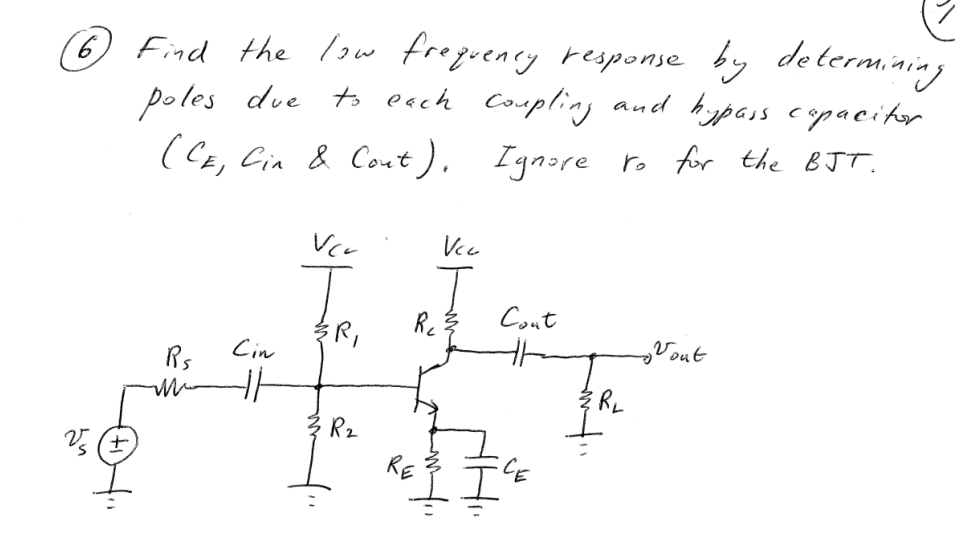 (6) Find the low frequency response by determining
poles due to each coupling and bypass capacitor
(CE, Cin & Cout). Ignore ro for the BJT.
Vcc Vcc
R1 Rc Cout
Rs Cin Vout
RL
R2
vs ±
RE CE